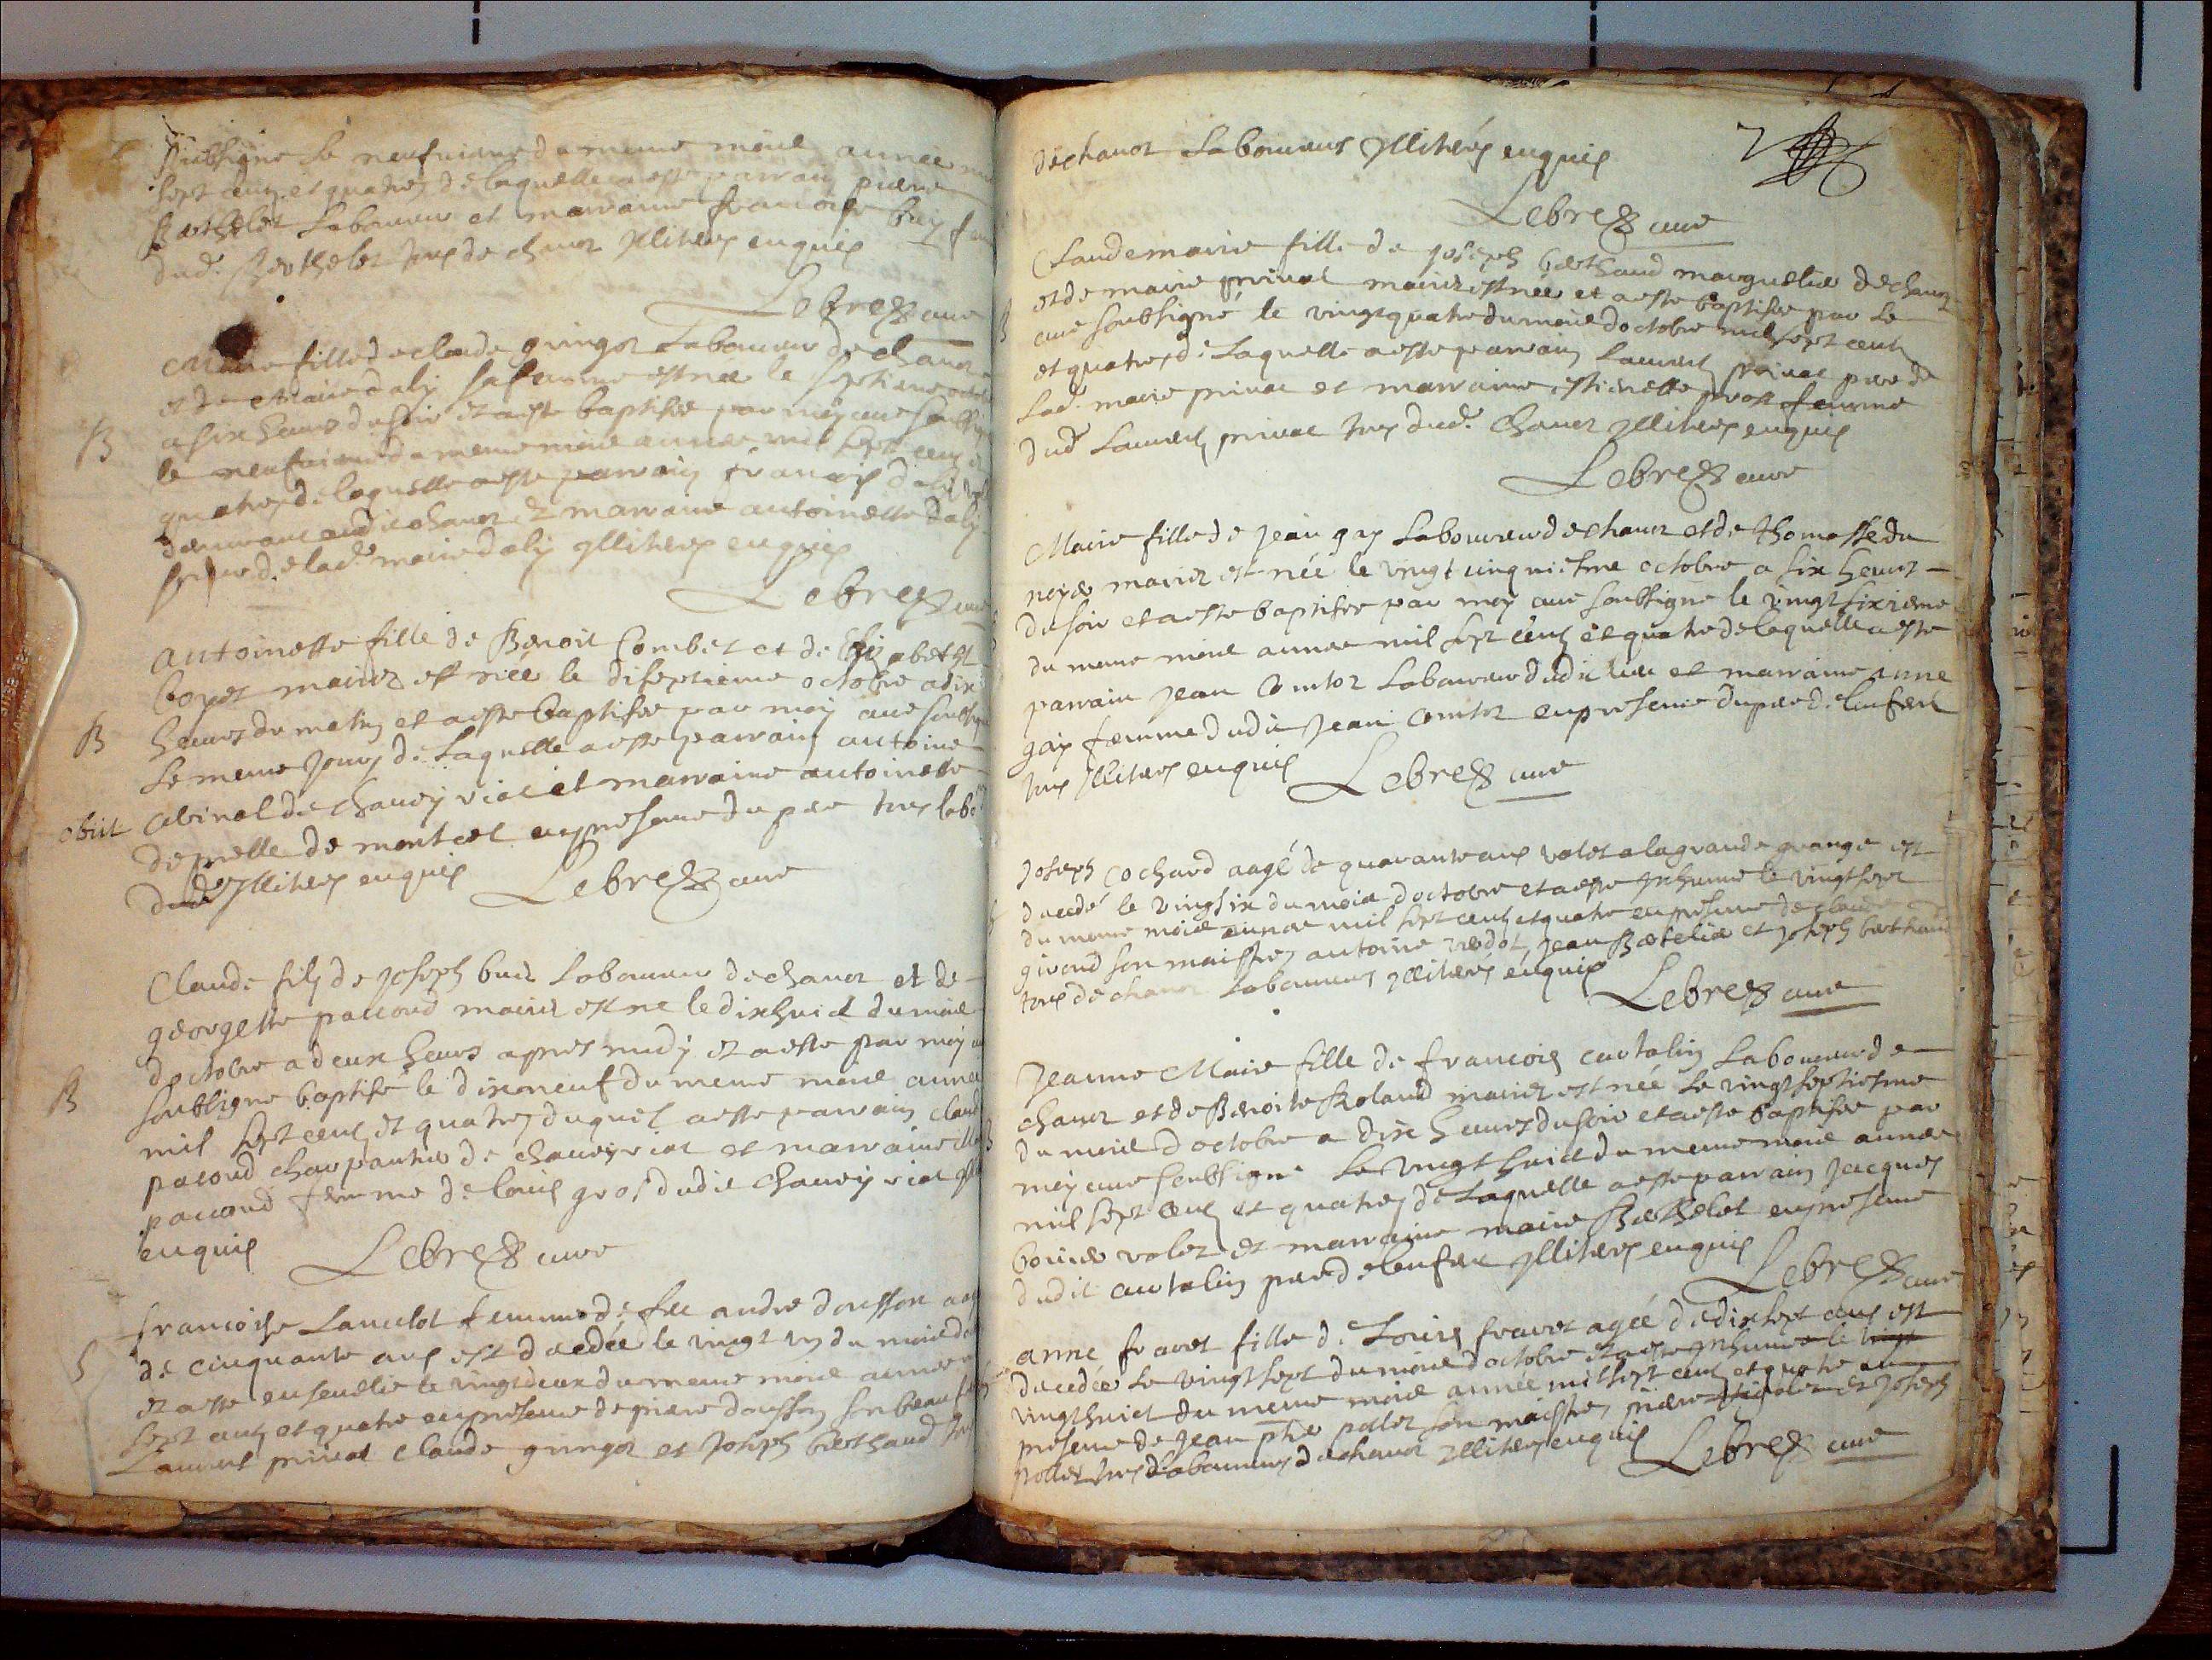 soubsigne le neufvieme du meme moiie année
sept cens et quatre, de laquelle a esté parrain pierre
Berthelet Laboureur et marraine francoise buy
dud. Berthelet tous de chanoz Illiterés enquis
Lebrez cure
Marie fille de claude guingoz Laboureur de chanoz
et de Marie daly sa femme est née le septieme octobre
B
a six heures du soir et a esté baptisée par moy cure soubsigne
le neufvieme du meme moiie année mil sept cens et
quatre, de laquelle a esté parrain francois daly
demeurant audit chanoz & marraine antoinette daly
soeur de lad. marie daly Illiterés enquis
Lebrez cure
Antoinette fille de Benoit Combet et de Elizabeth
boyet mariez est née le diseptieme octobre a dix
B
heures du matin et a esté baptisée par moy cure soubsigne
Le meme jour, de Laquelle a esté parrain antoine
obiit
abinal de chaveyriat et marraine antoinette
de prelle de montcel en presence du pere tous labo
dud. Illiterés enquis
Lebrez cure
Claude fils de Joseph buid Laboureur de chanoz et de
georgette paccoud mariez est ne le dixhuict du moiie
doctobre a deux heures apres midy et a esté par moy
B
soubsigne baptisé le dixneuf du meme moiie année
mil sept cens et quatre, duquel a esté parrain claude
pacoud charpantier de chaveyriat et marraine
paccoud femme de louis gros dudit chaveyriat
enquis
Lebrez cure
francoise Lancelot femme de feu andre dousson aagée
S
de cinquante ans est decedée le vingt un du moiie
et a esté ensevelie le vingtdeux du meme moiie année
sept cens et quatre en presence de pierre dousson son beau
Laurent privat claude guingoz et Joseph berthaud
de chanoz Laboureurs Illiterés enquis
7
Lebrez cure
Claudemarie fille de joseph berthaud marguelier de chanoz
et de marie privat mariez est née et a esté baptisée par Le
B
cure soubsigné le vingtquatre du moiie doctobre mil sept cens
et quatre, de Laquelle a esté parrain Laurent privat pere de
Lad. marie privat et marraine estienette prost femme
dud. Laurent privat tous dud. chanoz Illiterés enquis
Lebrez cure
Marie fille de jean gay Laboureur de chanoz et de thomasse du
noyer mariez est née le vingt cinquiesme octobre a six heures
du soir et a esté baptisée par moy cure soubsigne le vingtsixieme
du meme moiie année mil sept cens et quatre de laquelle a esté
parrain jean Comtoz Laboureur dudit lieu et marraine anne
gay femme dudit jean comtoz en presence du pere de lenfant
tous Illiterés enquis
Lebrez cure
Joseph Cochard aagé de quarante ans valet a la grande grange est
decedé le vingtsix du moiie doctobre et a esté Inhumé le vingtsept
du meme moiie année mil sept cens et quatre en presence de claude
giroud son maistre, antoine vedot, jean Batelier et joseph berthaud
tous de chanoz Laboureurs Illiterés enquis
Lebrez cure
Jeanne Marie fille de francois curtalin Laboureur de
chanoz et de Benoite Roland mariez est née Le vingtseptiesme
du moiie doctobre a dix heures du soir et a esté baptisée par
moy cure soubsigné Le vingthuict du meme moiie année
mil sept cens et quatre, de Laquelle a esté parrain jacques
bouiier valet et marraine marie Berthelet en presence
dudit curtalin pere de lenfant Illiterés enquis
Lebrez cure
anne fravet fille de Louis fravet agée de dixsept ans est
decedée Le vingtsept du moiie doctobre et a esté Inhumée le
vingthuict du meme moiie année mil sept cens et quatre en
presence de jean pollet son maistre, pierre et joseph
pollet tous Laboureurs de chanoz Illiterés enquis
Lebrez cure